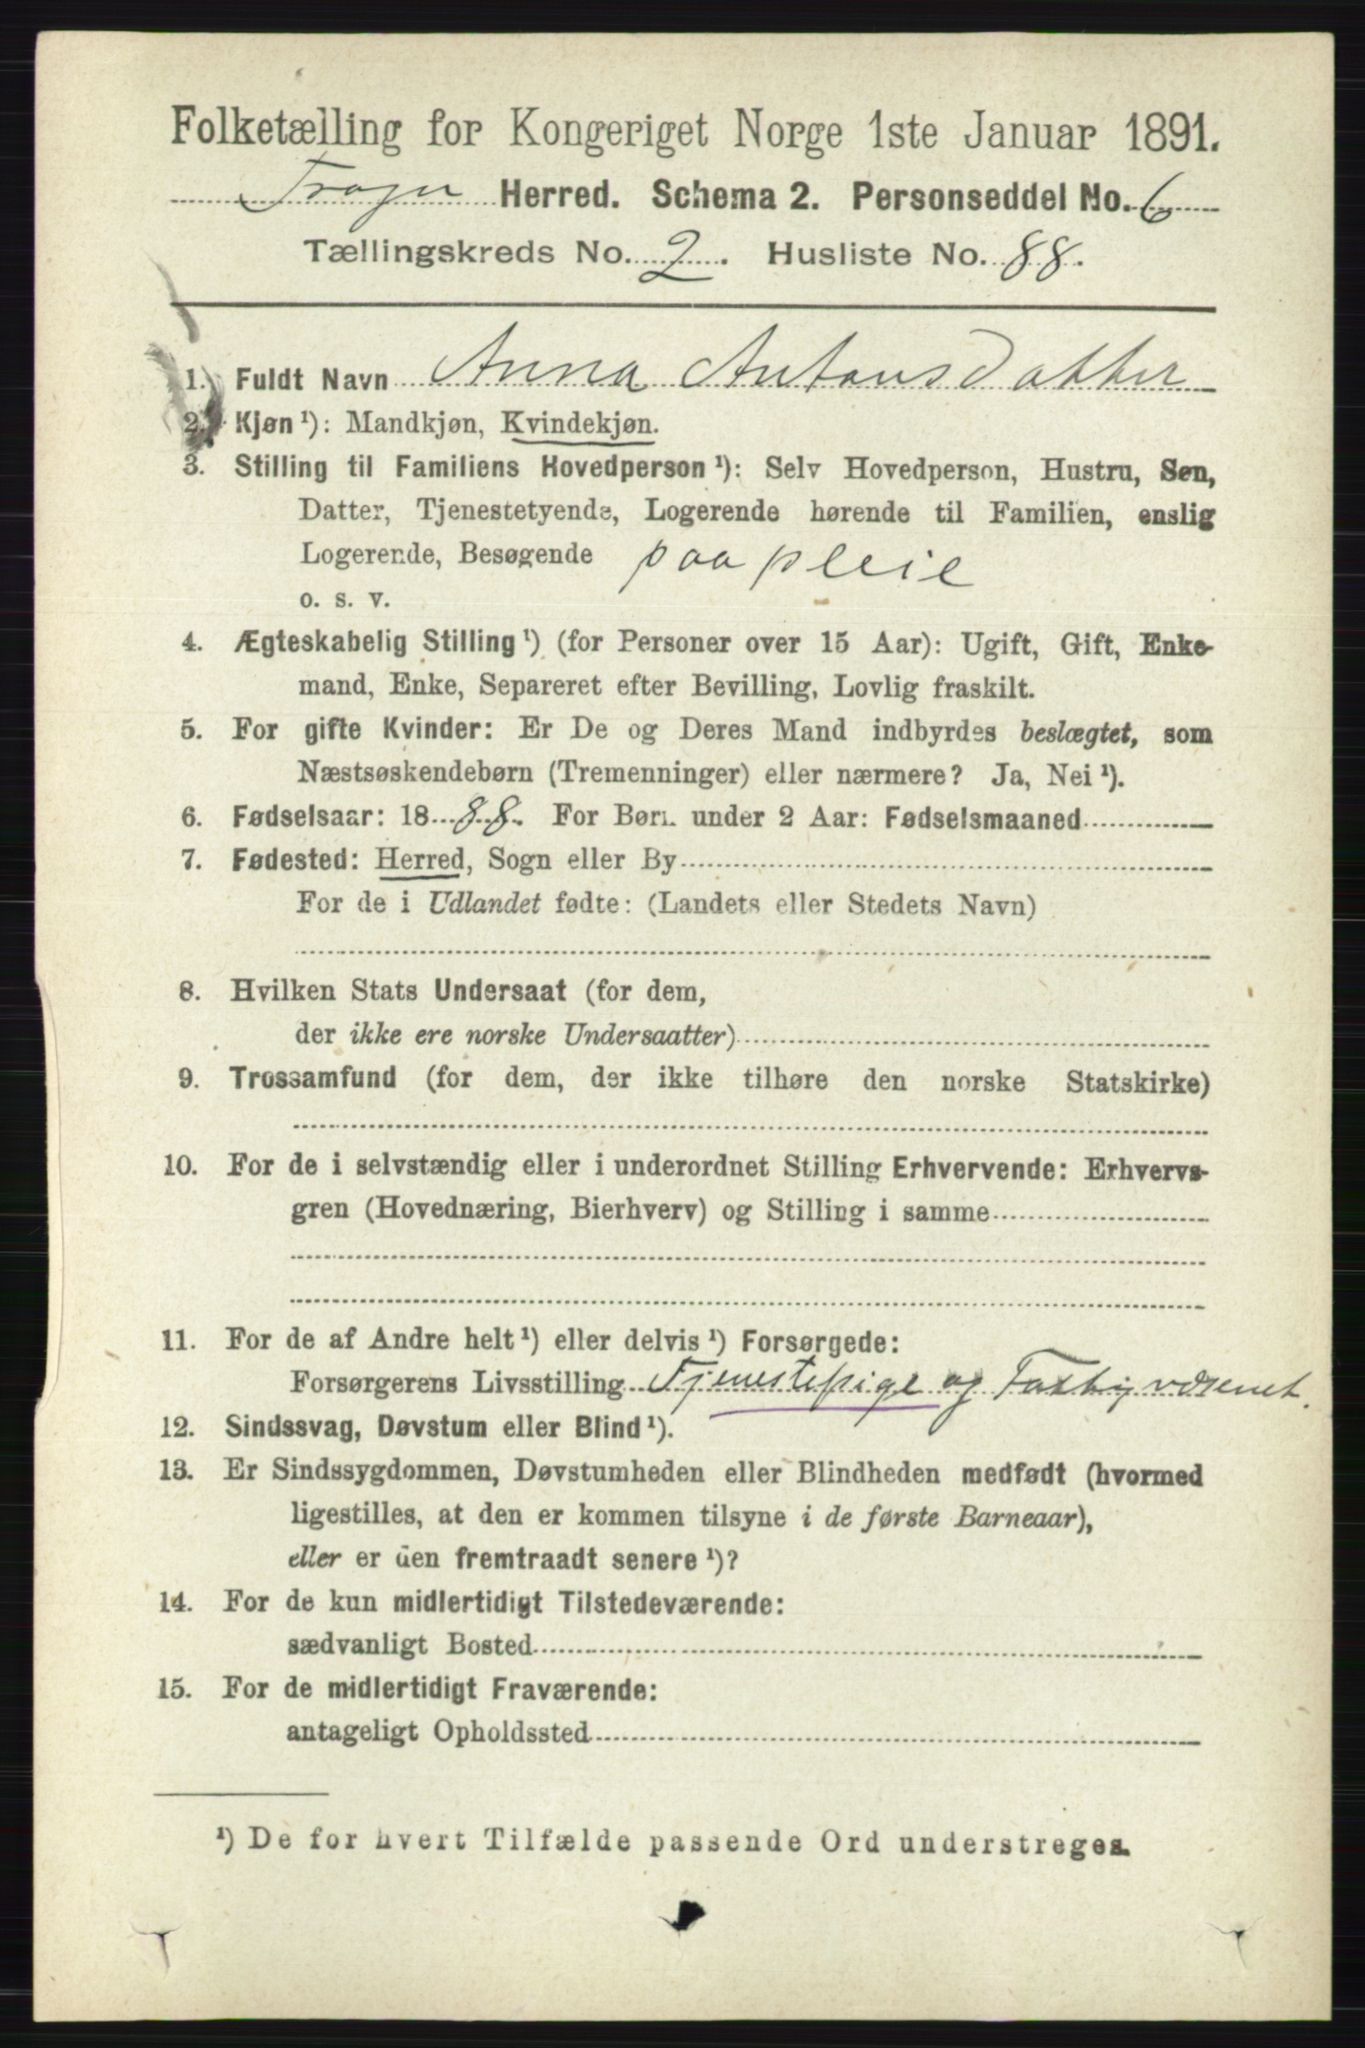 Folketælling for Kongeriget Norge 1ste Januar 1891.
Herred. Schema 2. Personseddel No. 6
Tællingskreds No. 2. Husliste No. 88.
1. Fuldt Navn Anna Antonsdatter
2. Kjøn ¹): Mandkjøn, Kvindekjøn.
3. Stilling til Familiens Hovedperson ¹): Selv Hovedperson, Hustru, Søn,
Datter, Tjenestetyende, Logerende hørende til Familien, enslig
Logerende, Besøgende paa pleie
o. s. v.
4. Ægteskabelig Stilling ¹) (for Personer over 15 Aar): Ugift, Gift, Enke-
mand, Enke, Separeret efter Bevilling, Lovlig fraskilt.
5. For gifte Kvinder: Er De og Deres Mand indbyrdes beslægtet, som
Næstsøskendebørn (Tremenninger) eller nærmere? Ja, Nei ¹).
6. Fødselsaar: 1888. For Børn under 2 Aar: Fødselsmaaned
7. Fødested: Herred, Sogn eller By
For de i Udlandet fødte: (Landets eller Stedets Navn)
8. Hvilken Stats Undersaat (for dem,
der ikke ere norske Undersaatter)
9. Trossamfund (for dem, der ikke tilhøre den norske Statskirke)
10. For de i selvstændig eller i underordnet Stilling Erhvervende: Erhvervs-
gren (Hovednæring, Bierhverv) og Stilling i samme
11. For de af Andre helt ¹) eller delvis ¹) Forsørgede:
Forsørgerens Livsstilling Tjenestepige og Fattigvæsenet.
12. Sindssvag, Døvstum eller Blind ¹).
13. Er Sindssygdommen, Døvstumheden eller Blindheden medfødt (hvormed
ligestilles, at den er kommen tilsyne i de første Barneaar),
eller er den fremtraadt senere ¹)?
14. For de kun midlertidigt Tilstedeværende:
sædvanligt Bosted
15. For de midlertidigt Fraværende:
antageligt Opholdssted
¹) De for hvert Tilfælde passende Ord understreges.